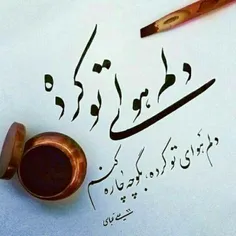 دلم هوای تو کرده
دلم هوای تو کرده، بگو چه چاره کنم